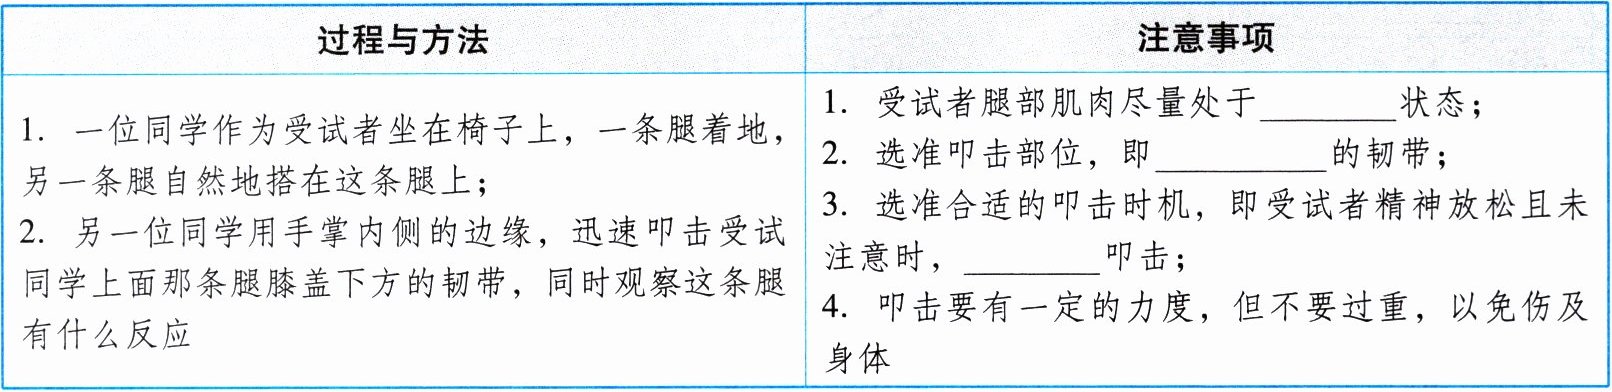 过程与方法
注意事项
1. 一位同学作为受试者坐在椅子上，一条腿着地，
另一条腿自然地搭在这条腿上；
2. 另一位同学用手掌内侧的边缘，迅速叩击受试
同学上面那条腿膝盖下方的韧带，同时观察这条腿
有什么反应
1. 受试者腿部肌肉尽量处于________状态；
2. 选准叩击部位，即__________的韧带；
3. 选准合适的叩击时机，即受试者精神放松且未
注意时，________叩击；
4. 叩击要有一定的力度，但不要过重，以免伤及
身体